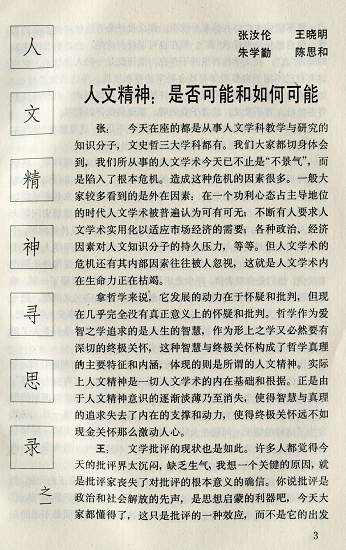 人
文
精
神
寻
思
录
之一
张汝伦 王晓明
朱学勤 陈思和
人文精神：是否可能和如何可能
张： 今天在座的都是从事人文学科教学与研究的
知识分子，文史哲三大学科都有。我们大家都切身体会
到，我们所从事的人文学术今天已不止是“不景气”，而
是陷入了根本危机。造成这种危机的因素很多。一般大
家较多看到的是外在因素：在一个功利心态占主导地位
的时代人文学术被普遍认为可有可无；不断有人要求人
文学术实用化以适应市场经济的需要；各种政治、经济
因素对人文知识分子的持久压力，等等。但人文学术的
危机还有其内部因素往往被人忽视，这就是人文学术内
在生命力正在枯竭。
拿哲学来说，它发展的动力在于怀疑和批判，但现
在几乎完全没有真正意义上的怀疑和批判。哲学作为爱
智之学追求的是人生的智慧，作为形上之学又必然要有
深切的终极关怀，这种智慧与终极关怀构成了哲学真理
的主要特征和内涵，体现的则是所谓的人文精神。实际
上人文精神是一切人文学术的内在基础和根据。正是由
于人文精神意识的逐渐淡薄乃至消失，使得智慧与真理
的追求失去了内在的支撑和动力，使得终极关怀远不如
现金关怀那么激动人心。
王： 文学批评的现状也是如此。许多人都觉得今
天的批评界太沉闷，缺乏生气，我想一个关键的原因，就
是批评家丧失了对批评的根本意义的确信。你说批评是
政治和社会解放的先声，是思想启蒙的利器吧，今天大
家都懂得了，这只是批评的一种效应，而不是它的出发
3